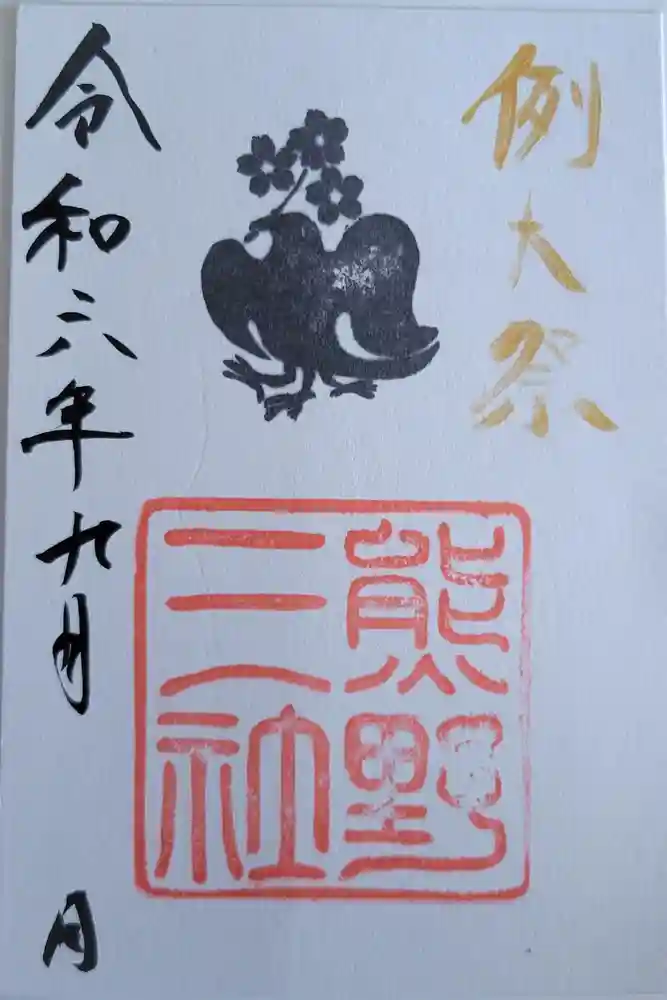 例大祭
熊野
三社
令和六年九月 日